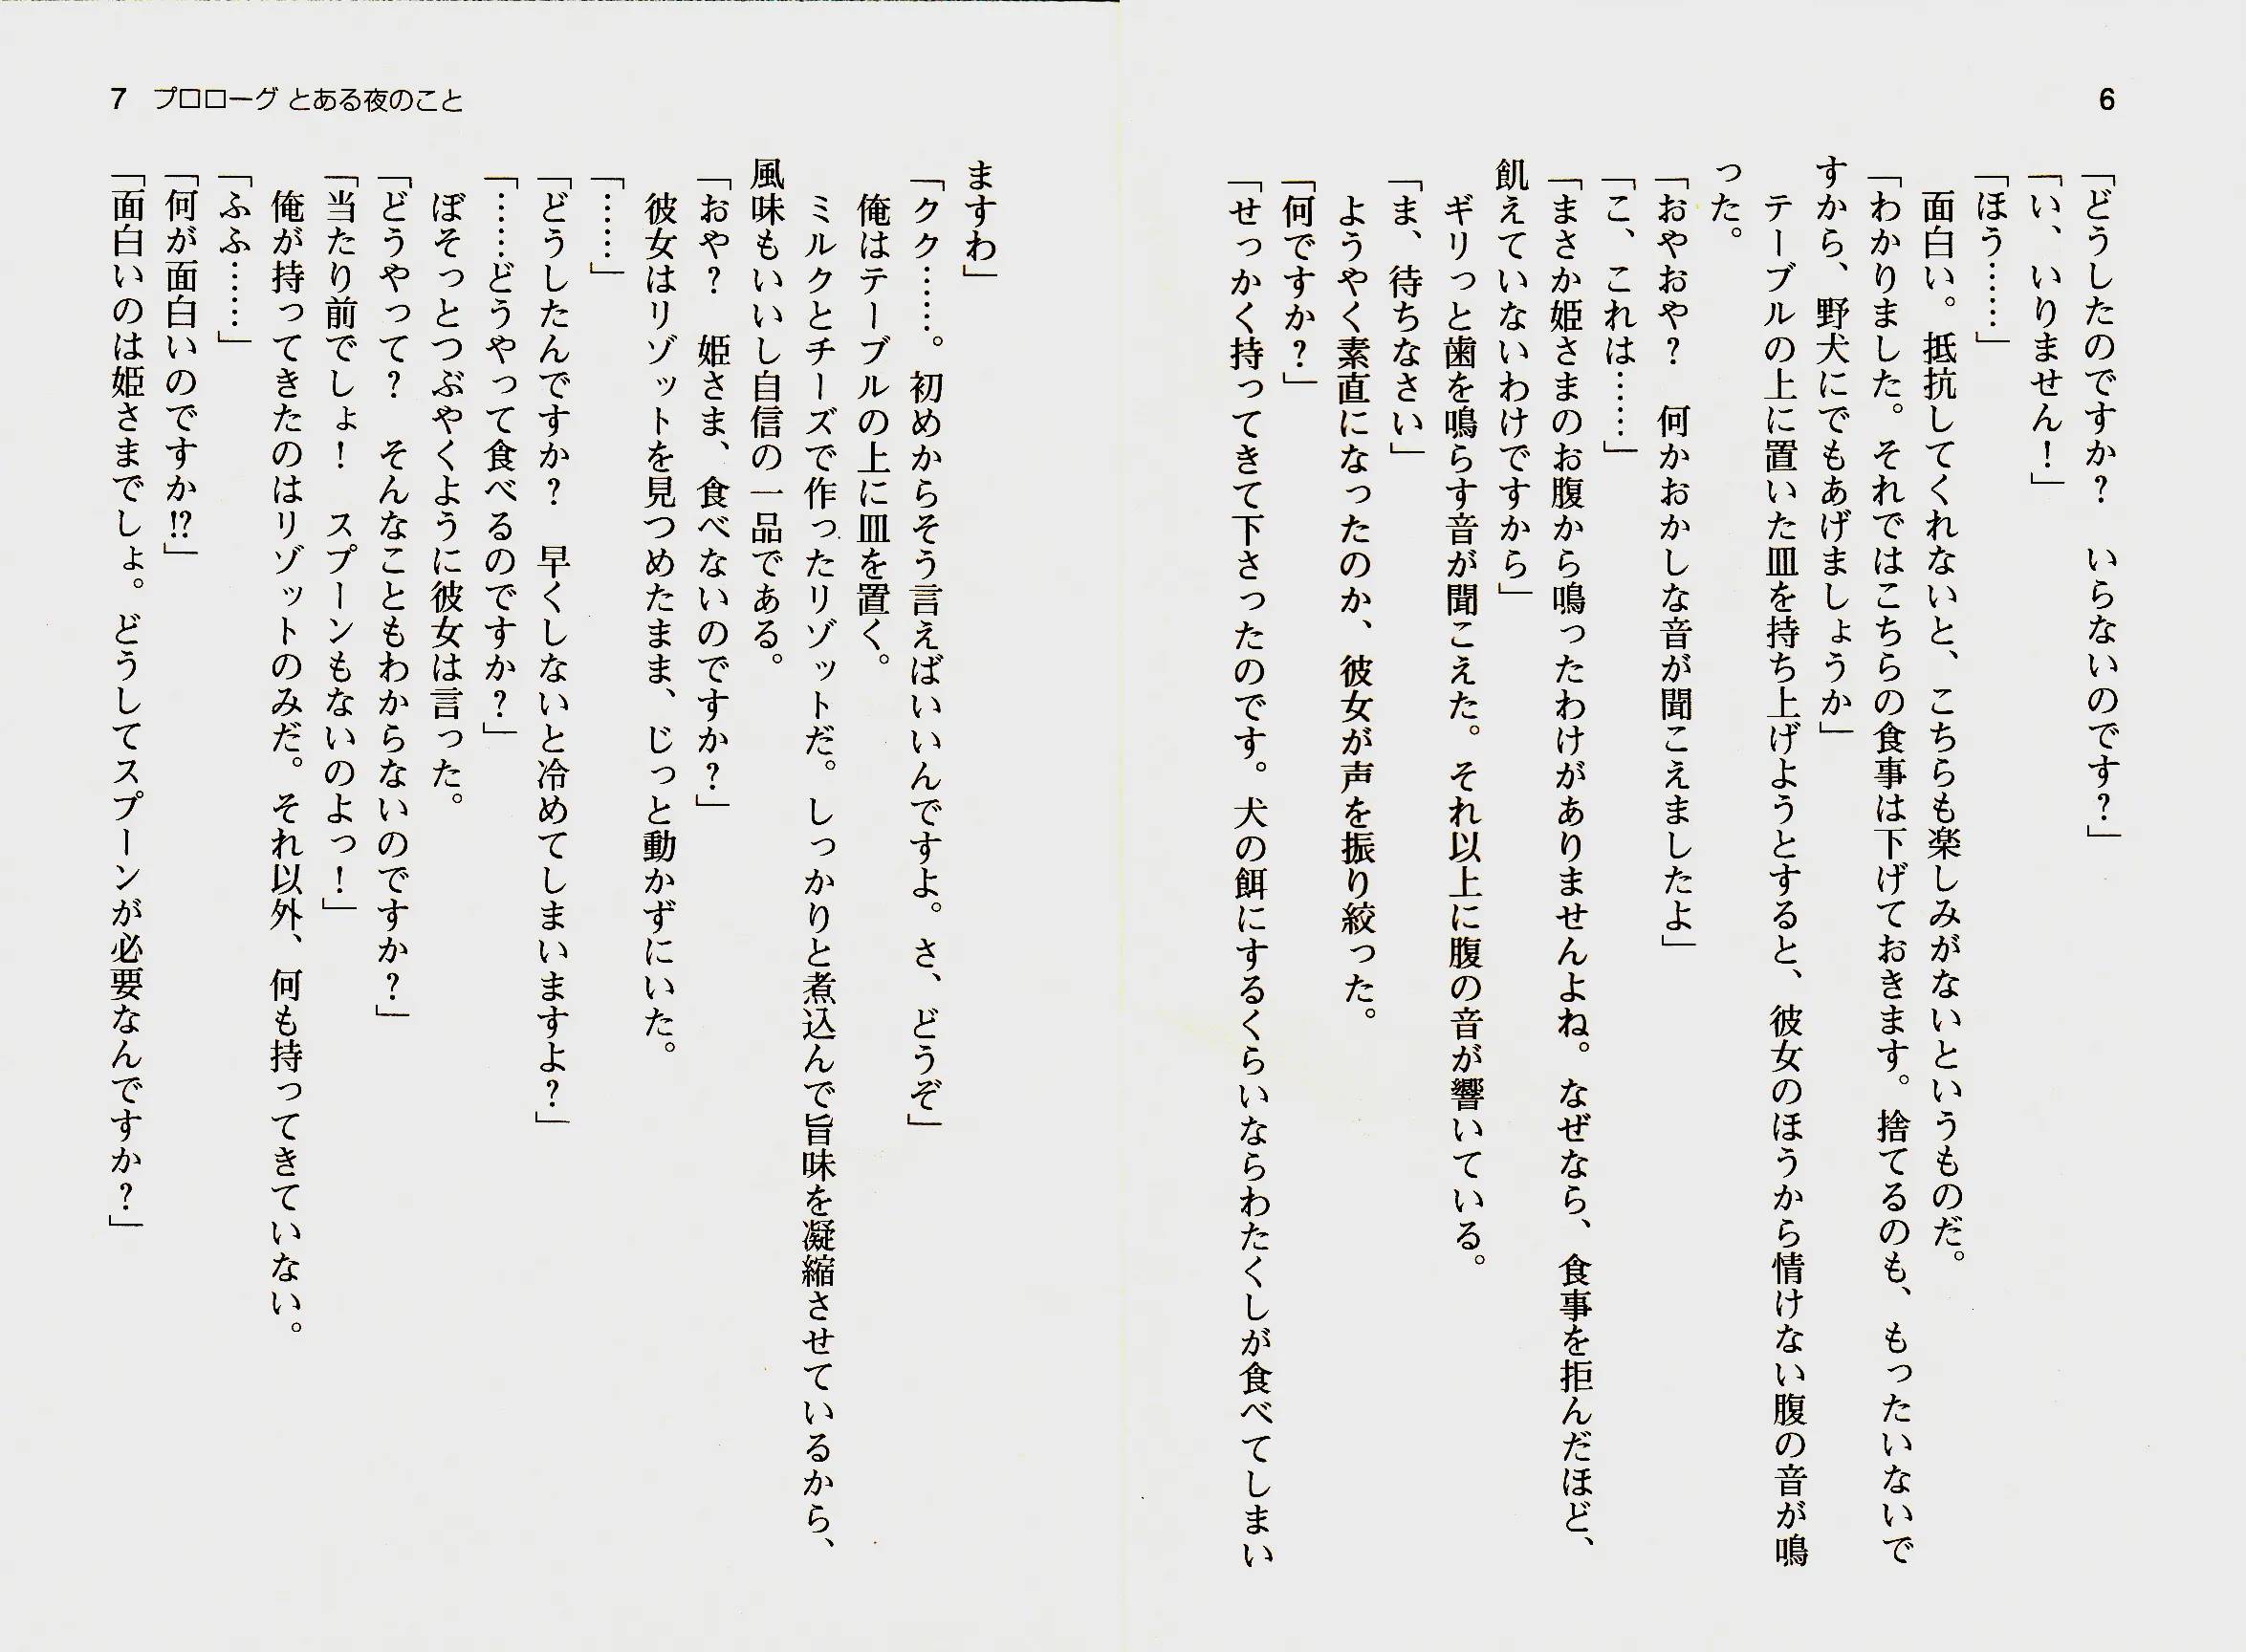 6
「どうしたのですか？　いらないのです？」
「い、いりません！」
「ほう……」
　面白い。抵抗してくれないと、こちらも楽しみがないというものだ。
「わかりました。それではこちらの食事は下げておきます。捨てるのも、もったいないで
すから、野犬にでもあげましょうか」
　テーブルの上に置いた皿を持ち上げようとすると、彼女のほうから情けない腹の音が鳴
った。
「おやおや？　何かおかしな音が聞こえましたよ」
「こ、これは……」
「まさか姫さまのお腹から鳴ったわけがありませんよね。なぜなら、食事を拒んだほど、
飢えていないわけですから」
　ギリっと歯を鳴らす音が聞こえた。それ以上に腹の音が響いている。
「ま、待ちなさい」
　ようやく素直になったのか、彼女が声を振り絞った。
「何ですか？」
「せっかく持ってきて下さったのです。犬の餌にするくらいならわたくしが食べてしまい
7 プロローグ とある夜のこと
ますわ」
「クク……。初めからそう言えばいいんですよ。さ、どうぞ」
　俺はテーブルの上に皿を置く。
　ミルクとチーズで作ったリゾットだ。しっかりと煮込んで旨味を凝縮させているから、
風味もいいし自信の一品である。
「おや？　姫さま、食べないのですか？」
　彼女はリゾットを見つめたまま、じっと動かずにいた。
「……」
「どうしたんですか？　早くしないと冷めてしまいますよ？」
「……どうやって食べるのですか？」
　ぼそっとつぶやくように彼女は言った。
「どうやって？　そんなこともわからないのですか？」
「当たり前でしょ！　スプーンもないのよっ！」
　俺が持ってきたのはリゾットのみだ。それ以外、何も持ってきていない。
「ふふ……」
「何が面白いのですか!?」
「面白いのは姫さまでしょ。どうしてスプーンが必要なんですか？」